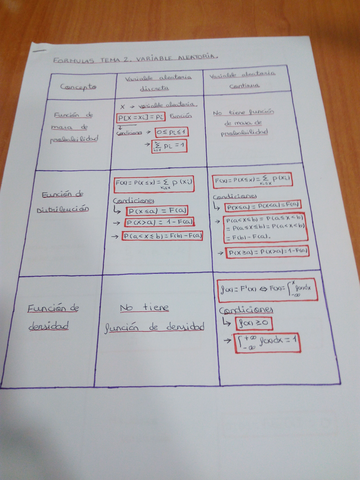 FORMULAS TEMA 2. VARIABLE ALEATORIA.
Concepto
Variable aleatoria
discreta
Variable aleatoria
continua
Función de
masa de
probabilidad
X = variable aleatoria
P(X=xi)=Pi Función
Condiciones → 0≤Pi≤1
→ Σ Pi=1
No tiene función
de masa de
probabilidad
Función de
Distribución
F(x)=P(X≤x)=Σ P(Xi)
Condiciones
→ P(X≤a)=F(a)
→ P(X>a)=1-F(a)
→ P(a<X≤b)=F(b)-F(a)
F(x)=P(X≤x)=Σ P(Xi)
Condiciones
→ P(X≤a)=P(X<a)=F(a)
→ P(a<X≤b)=P(a≤X<b)=
=P(a≤X≤b)=P(a<X<b)=
=F(b)-F(a).
→ P(X≥a)=P(X>a)=1-F(a)
Función de
densidad
No tiene
función de densidad
f(x)=F'(x) ⇔ F(x)=∫ f(x)dx
-∞
Condiciones
→ f(x)≥0
→ ∫ +∞ -∞ f(x)dx=1